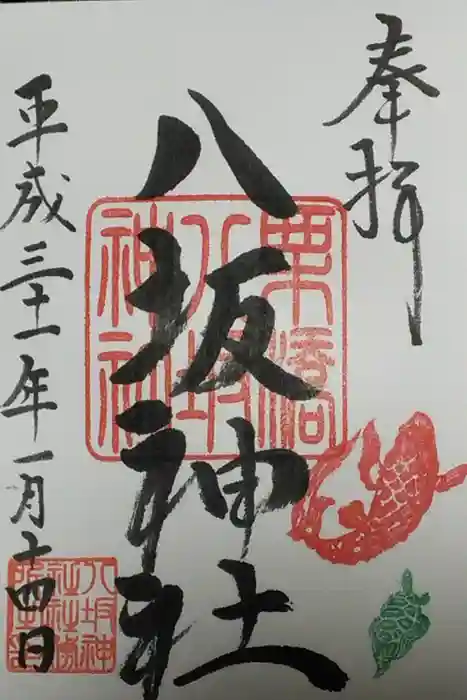 奉拝
八坂神社
平成三十一年一月十四日
栗橋
八坂
神社